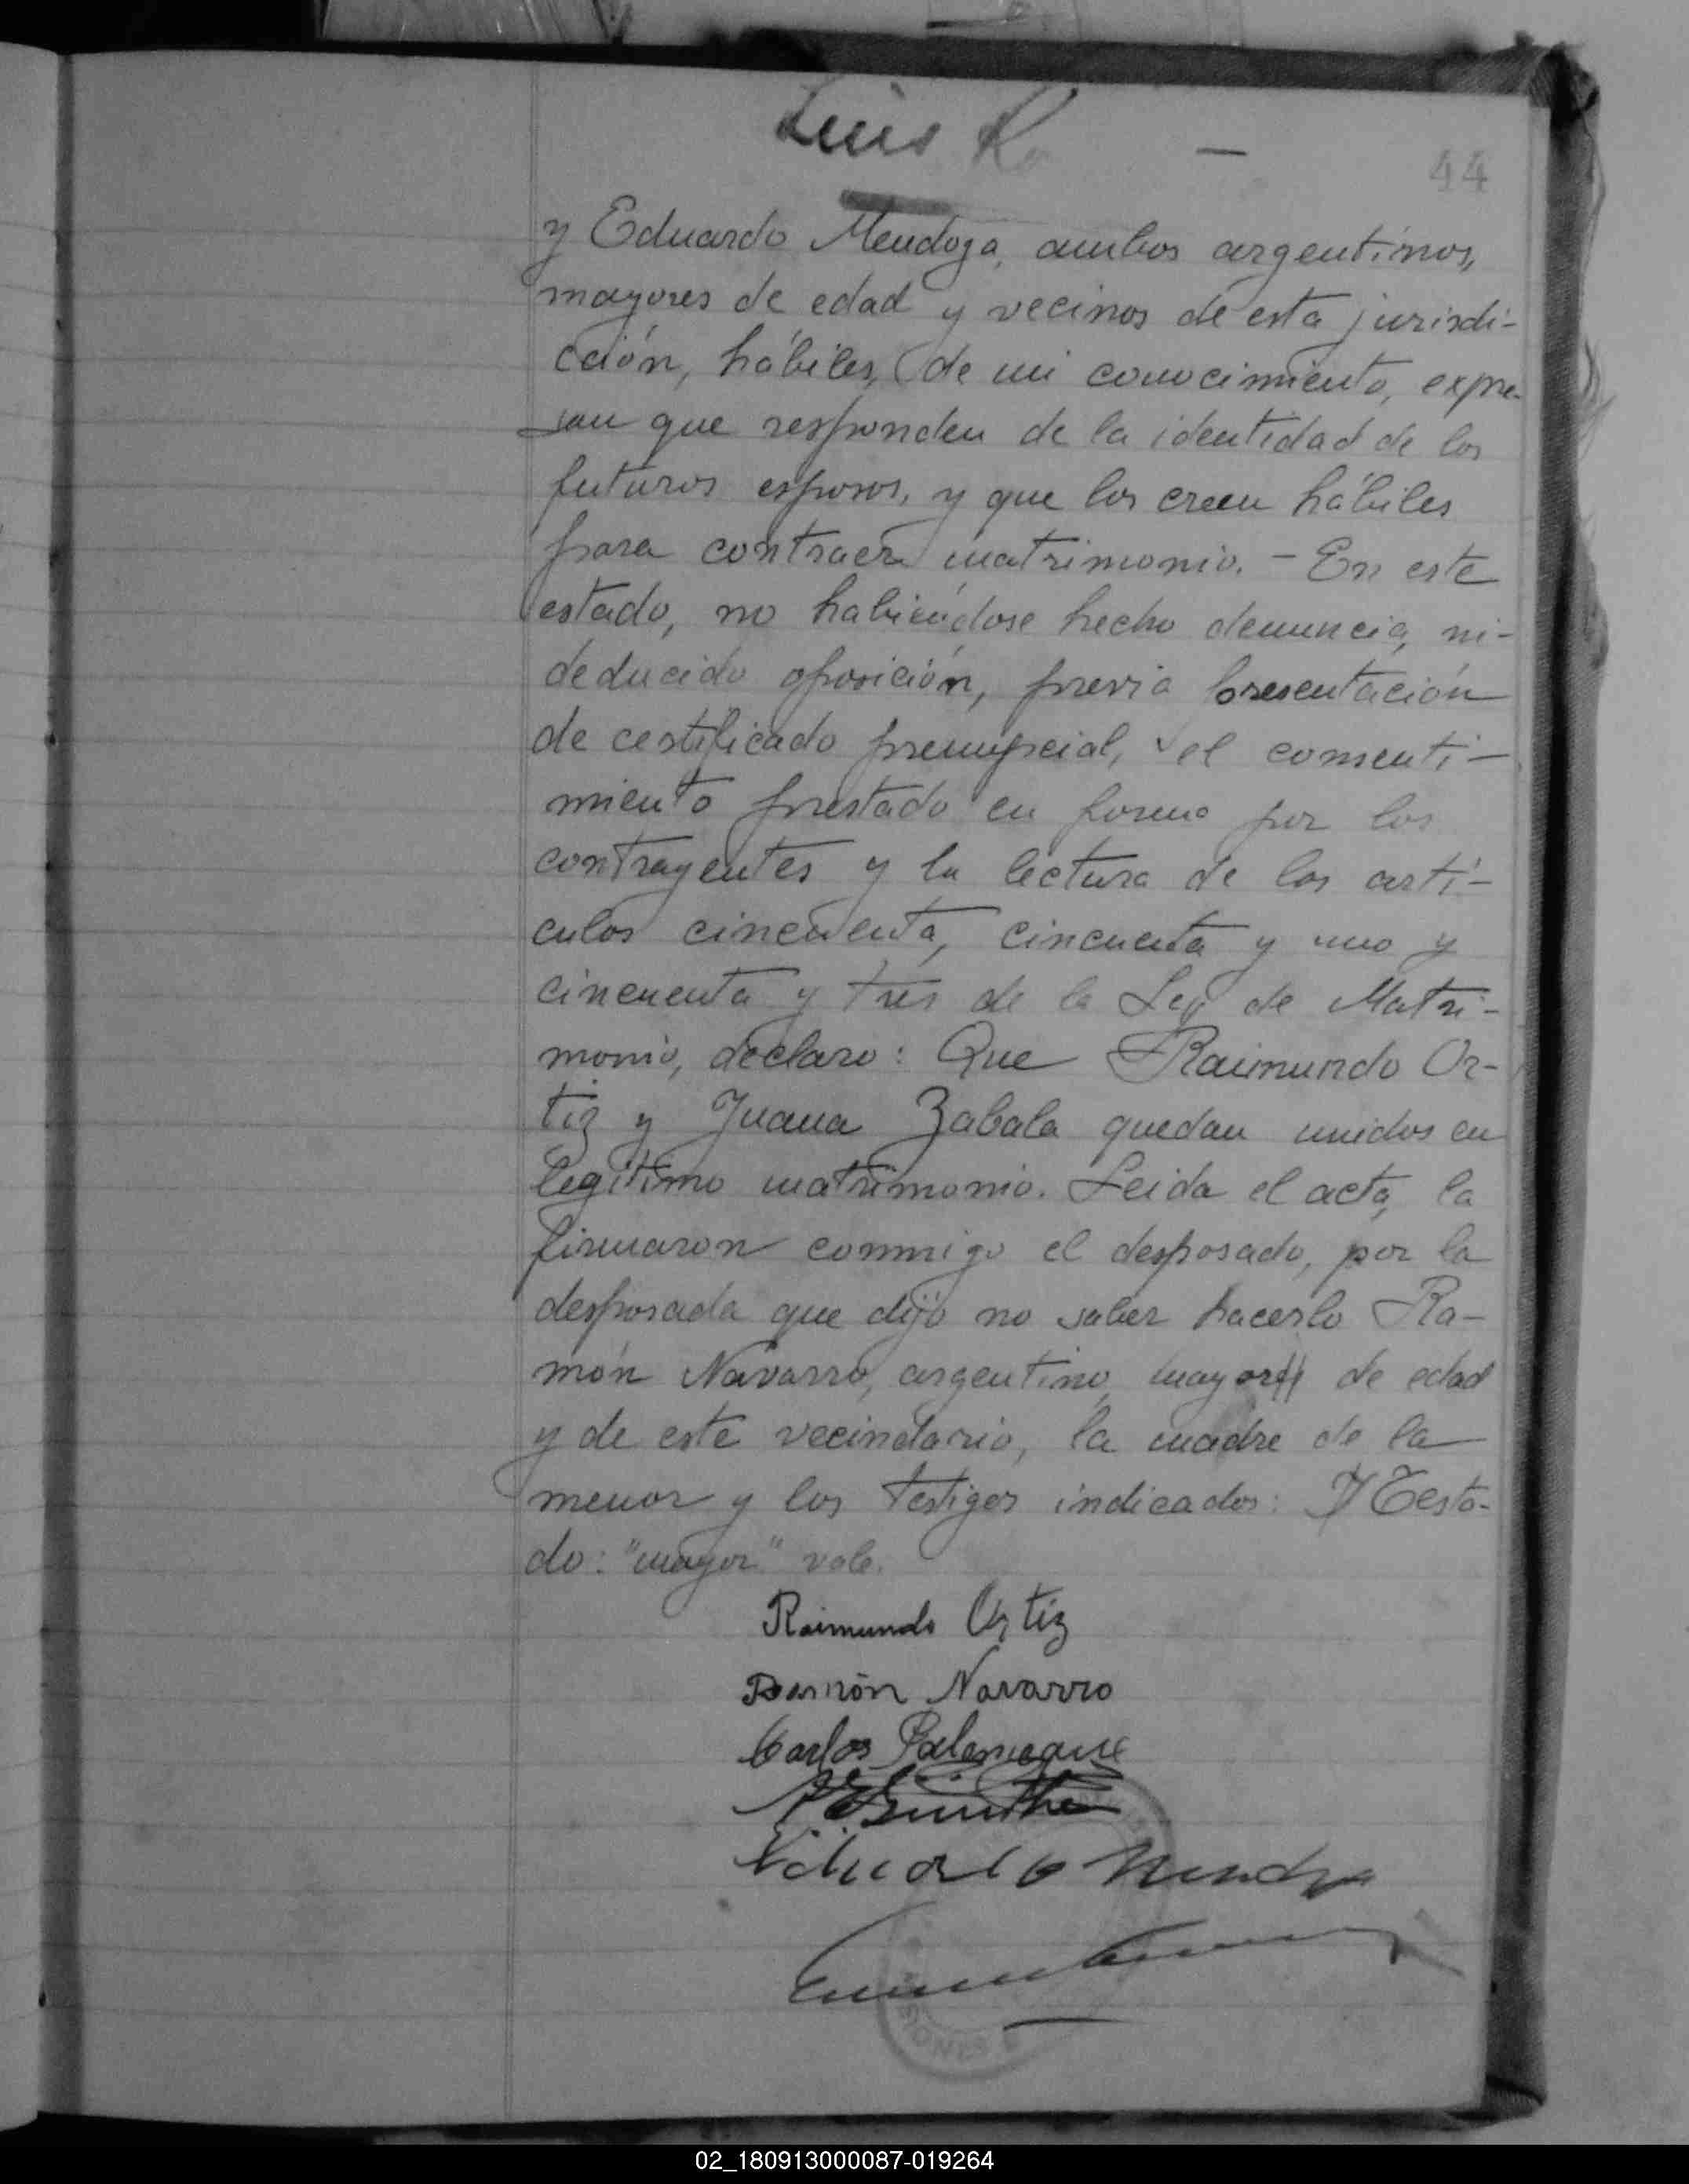 Luis
44
y Eduardo Mendoza, ambos argentinos,
mayores de edad y vecinos de esta jurisdi-
cción, hábiles, de mi conocimiento, expre-
san que responden de la identidad de los
futuros esposos, y que los creen hábiles
para contraer matrimonio. - En este
estado, no habiéndose hecho denuncia, ni-
deducido oposición, previa presentación
de certificado prenupcial, el consenti-
miento prestado en forma por los
contrayentes y la lectura de los artí-
culos cincuenta, cincuenta y uno y
cincuenta y tres de la Ley de Matri-
monio, declaro: Que Raimundo Or-
tiz y Juana Zabala quedan unidos en
legítimo matrimonio. Leida el acta, la
firmaron conmigo el desposado, por la
desposada que dijo no saber hacerlo Ra-
món Navarro, argentino, mayor de edad
y de este vecindario, la madre de la
menor y los testigos indicados: Testa-
do: "mayor" vale.
Raimundo Ortiz
Ramón Navarro
Carlos
Eduardo Mendoza
SIONES
02_180913000087-019264